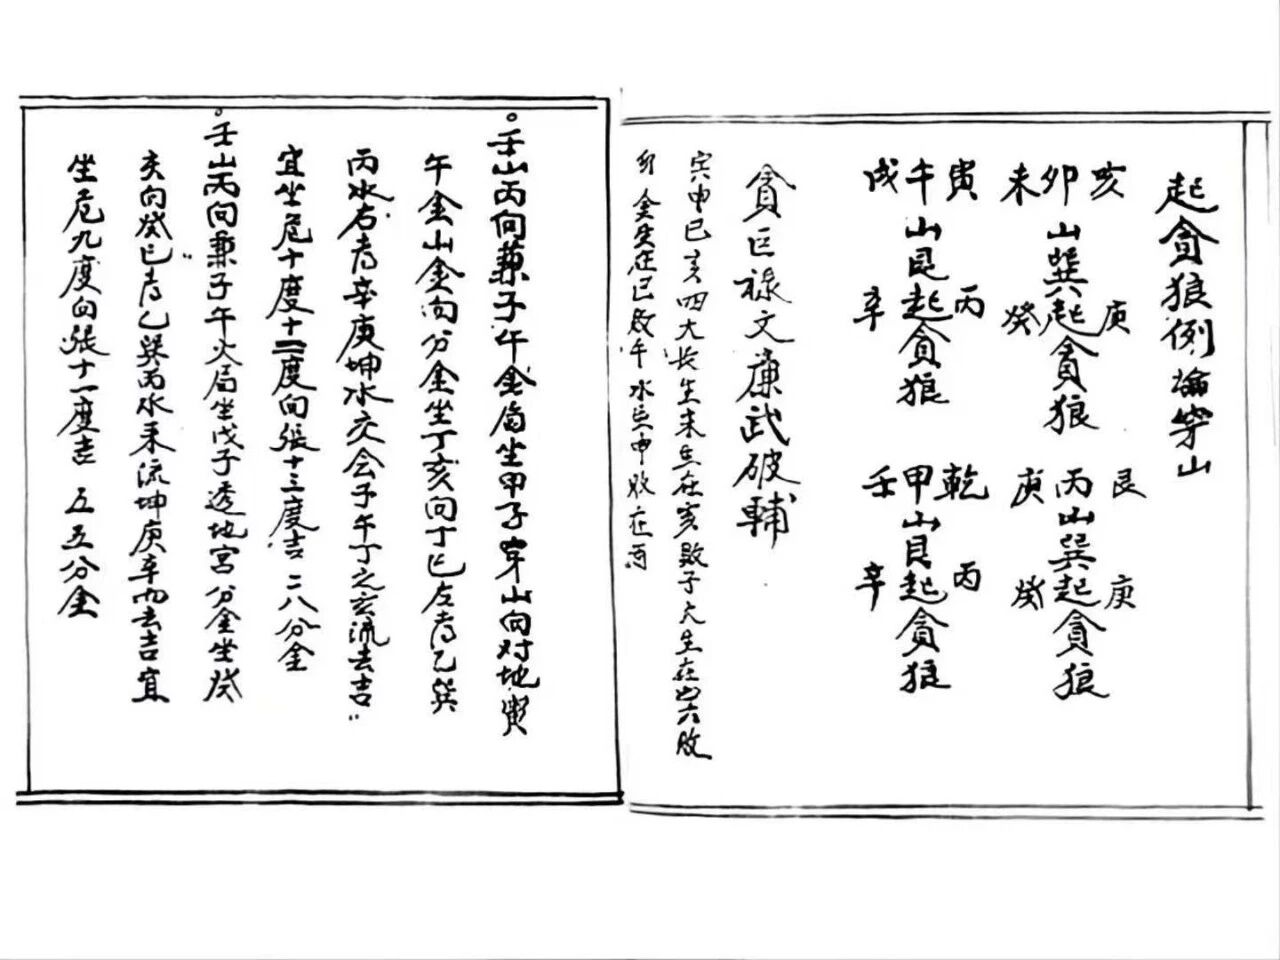 起貪狼例論穿山
亥卯未
山巽起貪狼
庚癸
寅午戌
山艮起貪狼
丙辛
艮丙庚
山巽起貪狼
庚癸
乾甲壬
山艮起貪狼
丙辛
貪巨祿文廉武破輔
寅申巳亥四大長生木生在亥敗子火生在 六敗
卯金生在巳敗午水生申敗在
。壬山丙向兼子午金局坐甲子穿山向对地
午金山金向分金坐丁亥向丁巳左有乙巽
丙水右有辛庚坤水交会子午丁之亥流去吉
宜坐危十度十二度向張十三度吉二八分金
。壬山丙向兼子午火局坐戊子透地宮分金坐癸
亥向癸巳有乙巽丙水来流坤庚辛而去吉宜
坐危九度向張十一度吉 五五分金